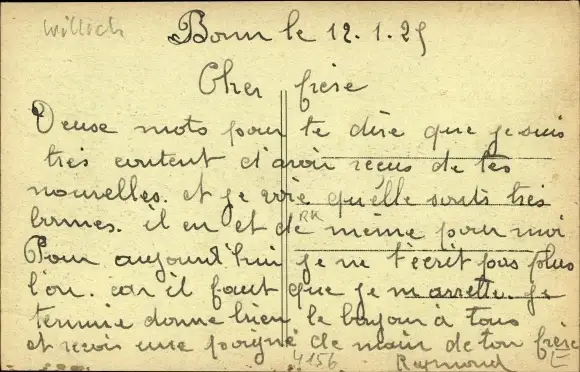 Willich
Bonn le 12.1.25
Cher frère
Deuse mots pour te dire que je suis
très contant d'avoir reçus de tes
nouvelles. et je voie qu'elle sonts très
bonnes. il en et de même pour moi
RK
Pour aujourd'hui je ne t'écrit pas plus
l'on. car il faut que je m arrette. je
termine donne bien le bonjour à tous
et recois une poigné de main de ton frère
4156 Raymond